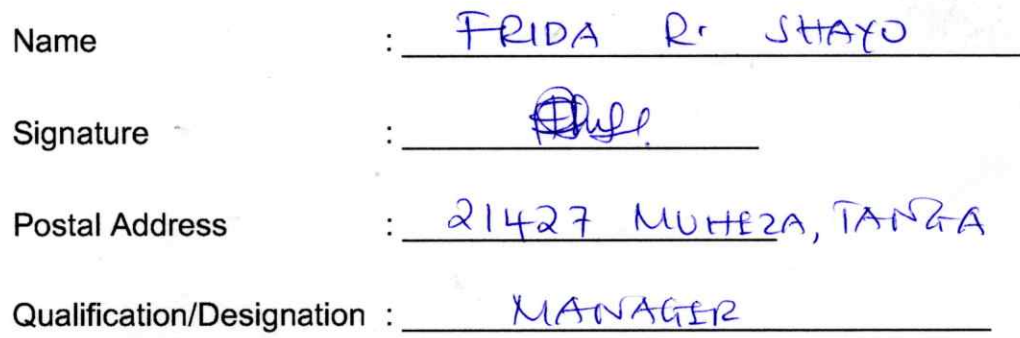 Name : FRIDA R. SHAYO
Signature :
Postal Address : 21427 MUHEZA, TANGA
Qualification/Designation : MANAGER